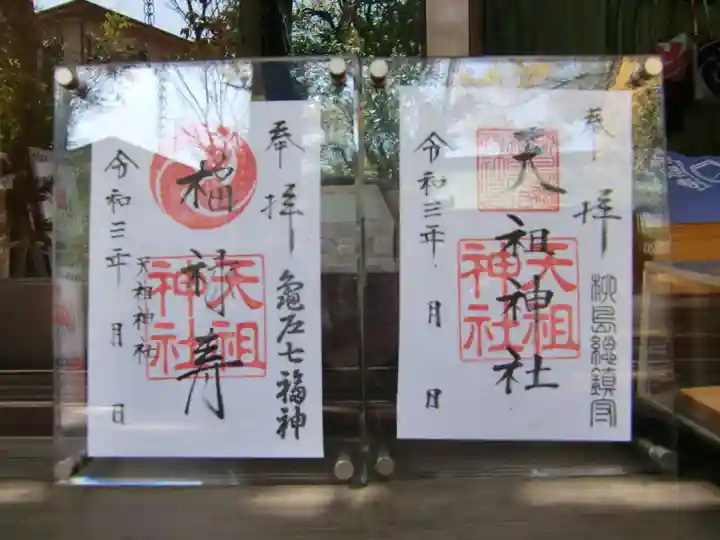 奉拝
柳島総鎮守
天祖神社
天祖神社
令和三年 月 日
奉拝
亀戸七福神
福禄寿
天祖神社
天祖神社
令和三年 月 日